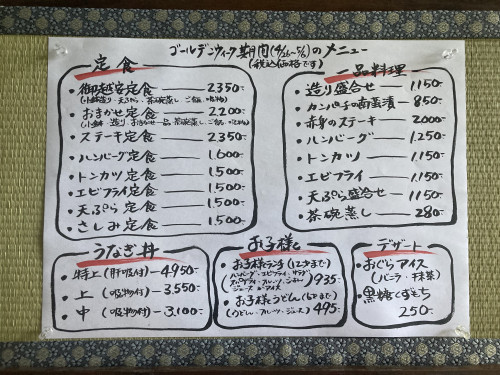 ゴールデンウィーク期間(4/26~5/6)のメニュー
(税込価格です)
定食
・御越客定食 ― 2350-
(小鉢・造り・天ぷら、茶碗蒸し、ご飯・吸物)
・おまかせ定食 ― 2200-
(小鉢・造り・おまかせ一品・茶碗蒸し、ご飯・吸物)
・ステーキ定食 ― 2,350-
・ハンバーグ定食 ― 1,600-
・トンカツ定食 ― 1,500-
・エビフライ定食 ― 1,500-
・天ぷら定食 ― 1,500-
・さしみ定食 ― 1,500-
一品料理
・造り盛合せ ― 1,150-
・カンパチの西京漬 ― 850-
・赤身のステーキ ― 2000-
・ハンバーグ ― 1,250-
・トンカツ ― 1,150-
・エビフライ ― 1,150-
・天ぷら盛合せ ― 1150-
・茶碗蒸し ― 280-
うなぎ丼
・特上(肝吸付) ― 4950-
・上(吸物付) ― 3,550-
・中(吸物付) ― 3,100-
お子様
・お子様ランチ
(ハンバーグ・エビフライ・サラダ
ジュース or アイス
935-
・お子様うどん
(うどん・フルーツ・ジュース) 495-
デザート
・おぐらアイス
(バニラ・抹茶)
・黒糖くずもち
250-